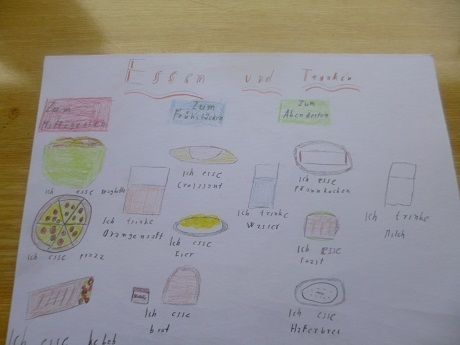 Essen und Trinken
Zum
Mittagessen
Zum
Frühstücken
Zum
Abendessen
Ich esse spaghetti
Ich trinke
Orangensaft
Ich esse pizza
Ich esse
Ich esse
Croissant
Ich trinke
Wasser
Ich esse
Eier
Ich esse
brot
Ich esse
Pfannkuchen
Ich trinke
Milch
Ich esse
Ich esse
Haferbrei